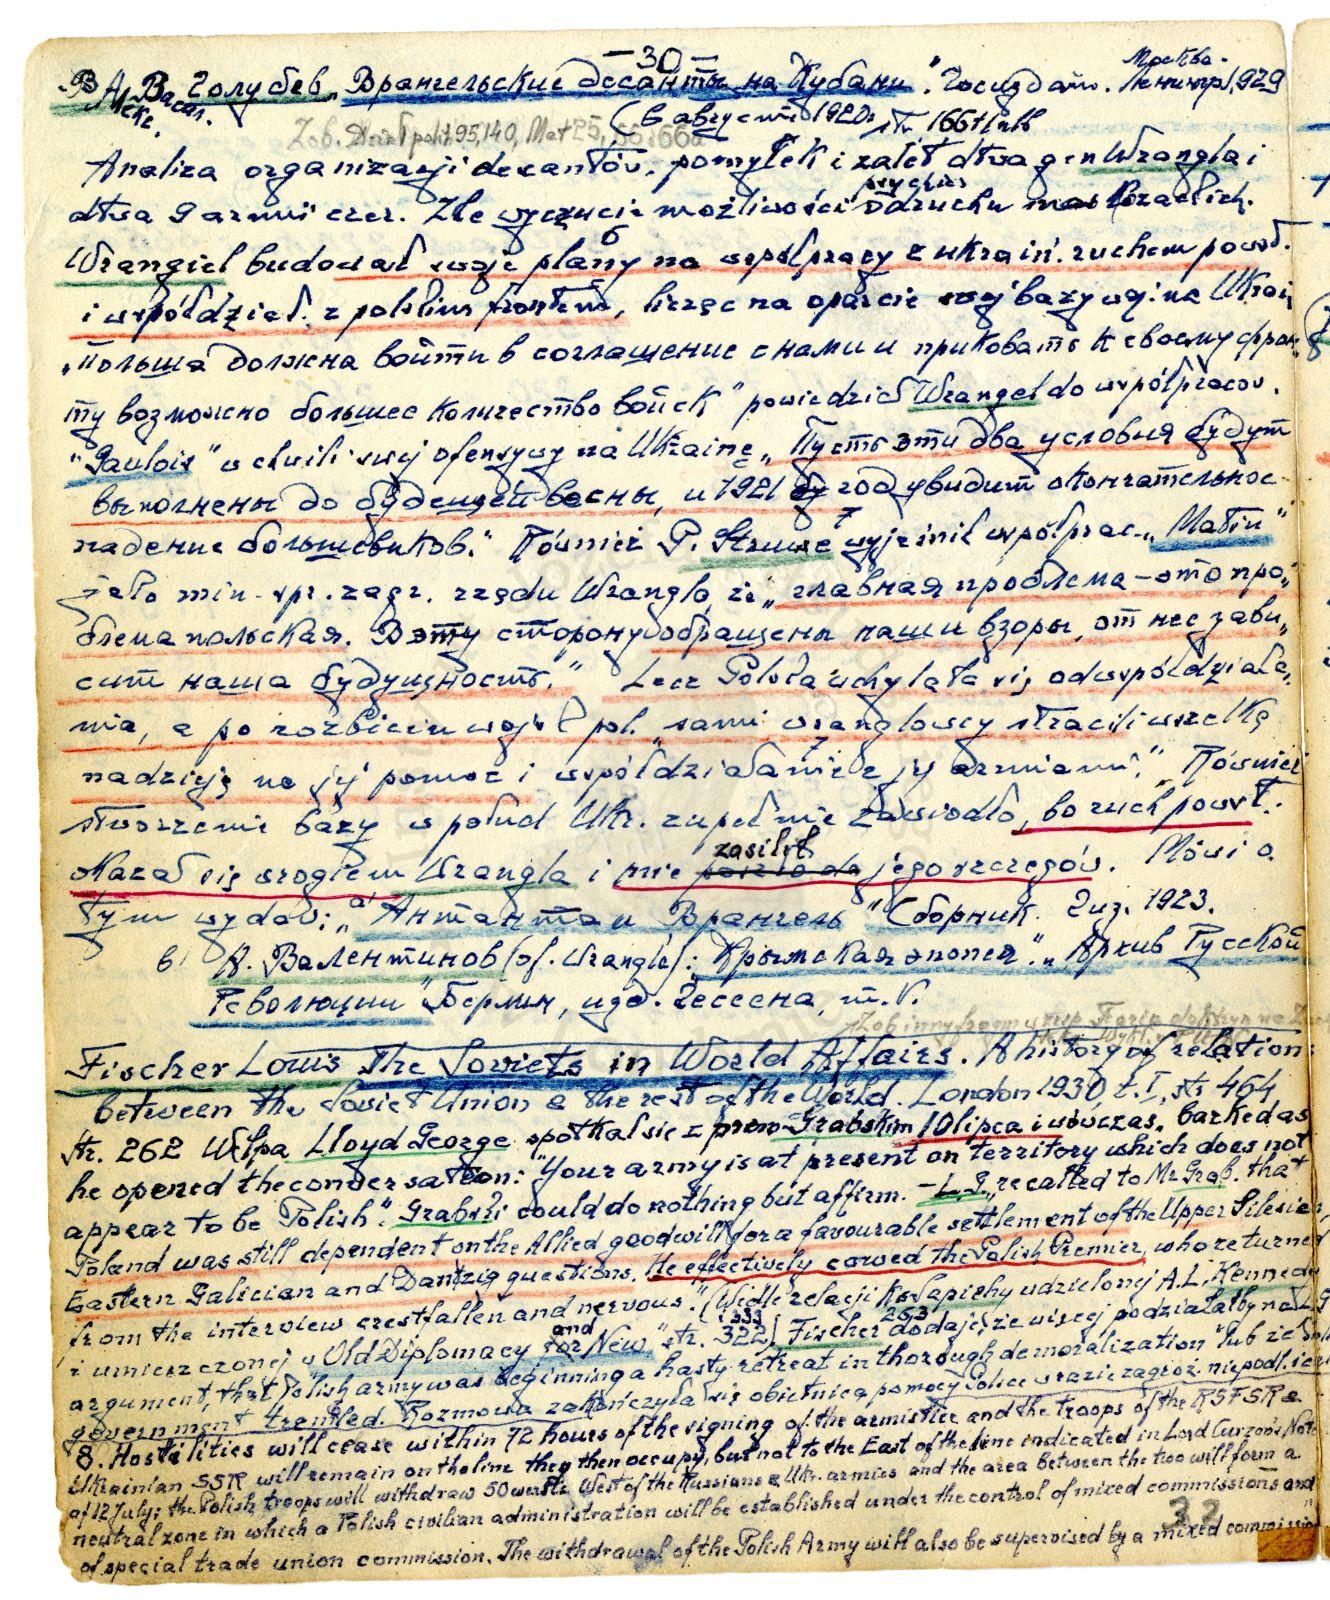 –30–
А. В. Голубев „Врангельские десанты на Кубани." Госиздат. Москва - Ленингр. 1929
Васил.
(в августе 1920) str. 166 +
Zob. Dział polit 95, 140, Mat 25,
Analiza organizacji desantów, pomyłek i zalet dtwa gen Wrangla i
dtwa 9 armii czer. Złe wyczucie możliwości odruchu Kozackich.
Wrangiel budował swoje plany na współpracy z ukraiń. ruchem powst.
i współdział. z polskim frontem, licząc na oparcie swej bazy wyj. na Ukrai.
„Польша должна войти в соглашение с нами и приковать к своему фрон„
ту возможно большее количество войск" powiedział Wrangel do współpracow.
"Gaulois" w chwili swej ofensywy na Ukrainę „Пусть эти два условия будут
выполнены до будещей весны, и 1921 год увидит окончательное
падение большевиков." Również P. Struwe wyjaśnił współprac. „Matin"
jako min. spr. zagr. rządu Wrangla, że „главная проблема – это про„
блема польская. В эту сторону обращены наши взоры, от нее зави„
сит наша будущность." Lecz Polska uchylała się od współdziała„
nia, a po rozbiciu wojsk pol. "sami wranglowcy stracili wszelką
nadzieję na jej pomoc i współdziałanie z jej armiami." Również
stworzenie bazy w połud Ukr. zupełnie zawiodło, bo ruch powst.
okazał się wrogiem Wrangla i nie zasilił jego szeregów. Mówi o
tym wydaw: a/ "Антанта и Врангель" Сборник. Гиз. 1923.
в/ А. Валентинов (of. Wrangla): Крымская эпопея." „Архив Русской
Революции" Берлин, изд. Гессена, т. V.
Zob inny fragm
Fischer Louis The Soviets in World Affairs. A history of relation
between the Soviet Union & the rest of the World. London 1930, t. I, str 464
str. 262 W Spa Lloyd George spotkał się z prem Grabskim 10 lipca i wówczas, barked as
he opened the conversation: "Your army is at present on territory which does not
appear to be Polish". Grabski could do nothing but affirm. – L. G. „recalled to Mr Grab. that
Poland was still dependent on the Allied goodwill for a favourable settlement of the Upper Silesian,
Eastern Galician and Dantzig questions. He effectively cowed the Polish Premier, who returned
from the interview crestfallen and nervous." (Wedle relacji Ks Sapiehy udzielonej A. L. Kennedy
i umieszczonej w „Old Diplomacy and New" str. 322) Fischer 263 dodaje, że więcej podziałałby na L G
argument, that Polish army was beginning a hasty retreat in thorough demoralization" lub że
government trembled. Rozmowa zakończyła się obietnicą pomocy Polsce w razie zagroż. niepodl.
8. Hostilities will cease within 72 hours of the signing of the armistice and the troops of the RSFSR &
Ukrainian SSR will remain on the line they then occupy, but not to the East of the line indicated in Lord Curzon's Note
of 12 July; the Polish troops will withdraw 50 wersts West of the Russians & Ukr. armies and the area between the two will form a
neutral zone in which a Polish civilian administration will be established under the control of mixed commissions and
of special trade union commission. The withdrawal of the Polish Army will also be supervised by a mixed commission
32